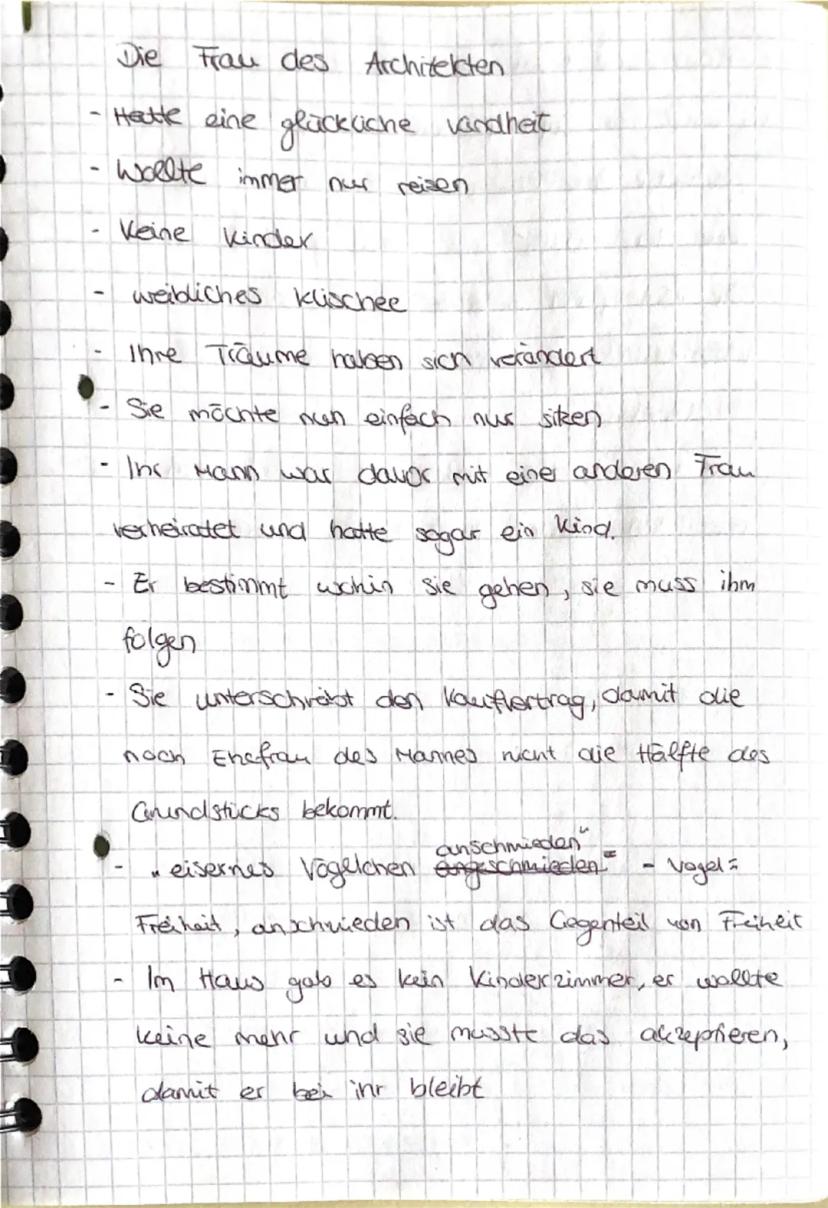 Die Frau des Architekten
- Hatte eine glückliche Kindheit
- Wollte immer nur reisen
- Keine Kinder
- weibliches Klischee
- Ihre Träume haben sich verändert
- Sie möchte nun einfach nur sitzen
- Ihr Mann war davor mit einer anderen Frau
verheiratet und hatte sogar ein Kind.
- Er bestimmt wohin sie gehen, sie muss ihm
folgen
- Sie unterschreibt den Kaufvertrag, damit die
noch Ehefrau des Mannes nicht die Hälfte des
Grundstücks bekommt.
- „eisernes Vögelchen anschmieden“ - Vogel =
Freiheit, anschmieden ist das Gegenteil von Freiheit
- Im Haus gab es kein Kinderzimmer, er wollte
keine mehr und sie musste das akzeptieren,
damit er bei ihr bleibt